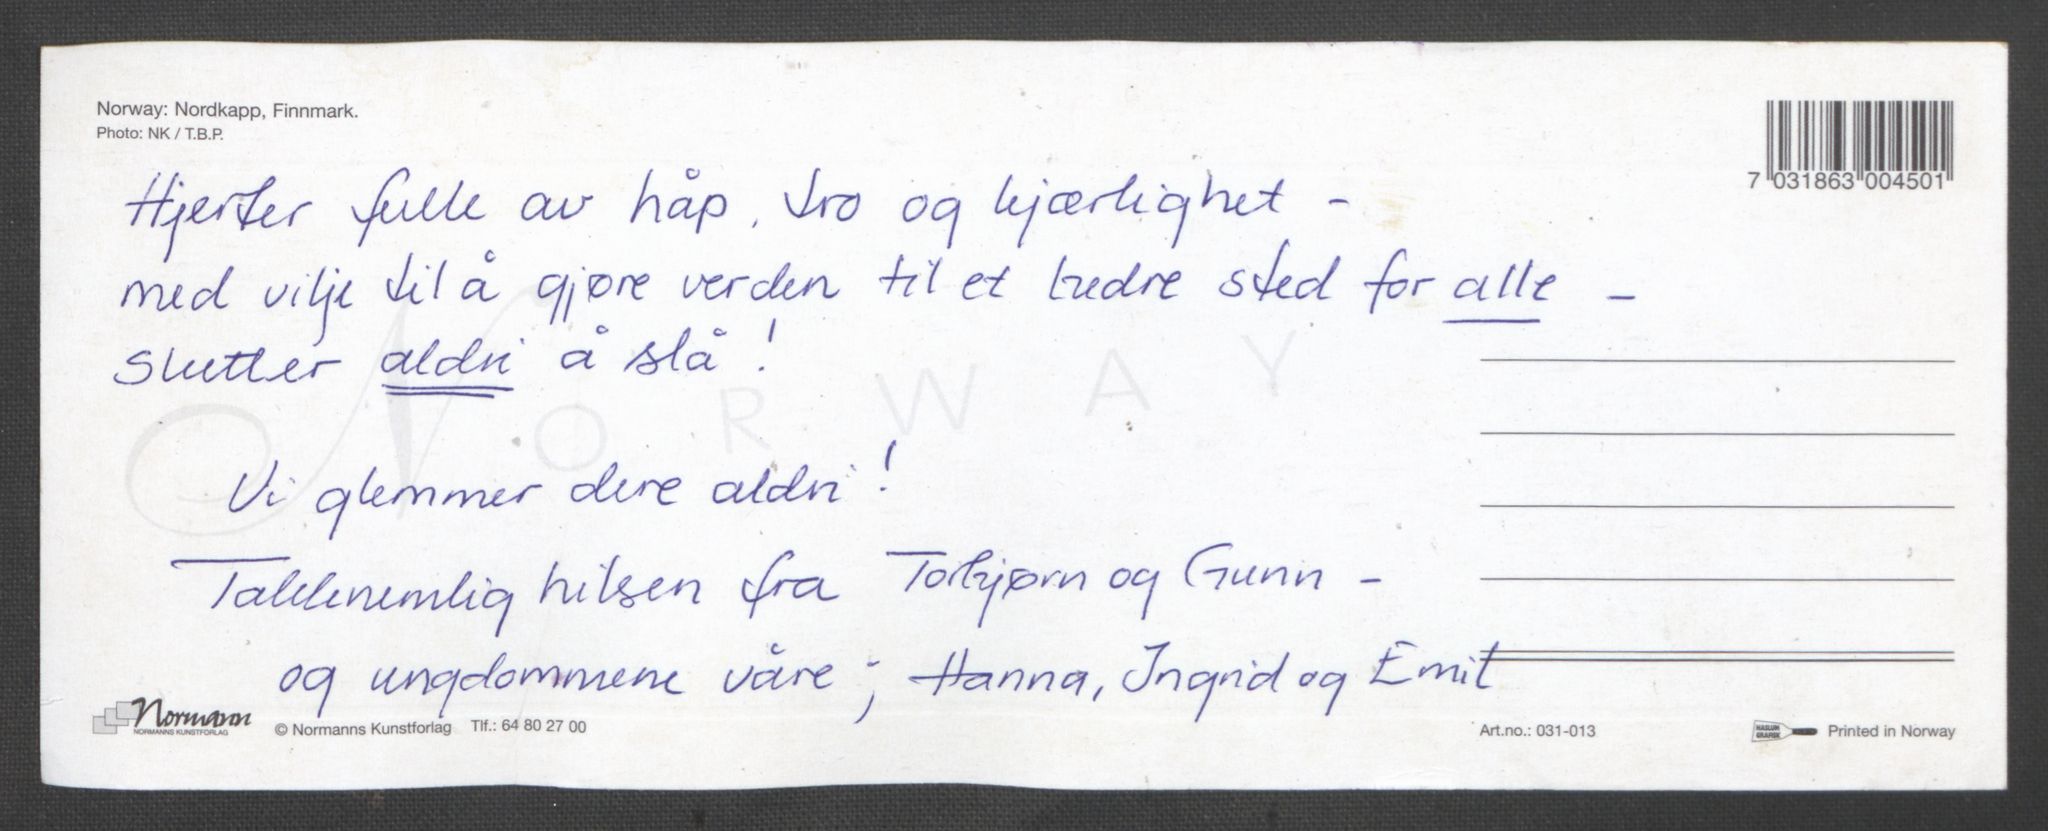 Norway: Nordkapp, Finnmark.
Photo: NK / T.B.P.
7 031863 004501
Hjerter fulle av håp, tro og kjærlighet -
med vilje til å gjøre verden til et bedre sted for alle -
slutter aldri å slå!
NORWAY
Vi glemmer dere aldri!
Takknemlig hilsen fra Torbjørn og Gunn -
og ungdommene våre; Hanna, Ingrid og Emil
Normann
NORMANNS KUNSTFORLAG
© Normanns Kunstforlag Tlf.: 64 80 27 00
Art.no.: 031-013
HASLUM GRAFISK
Printed in Norway